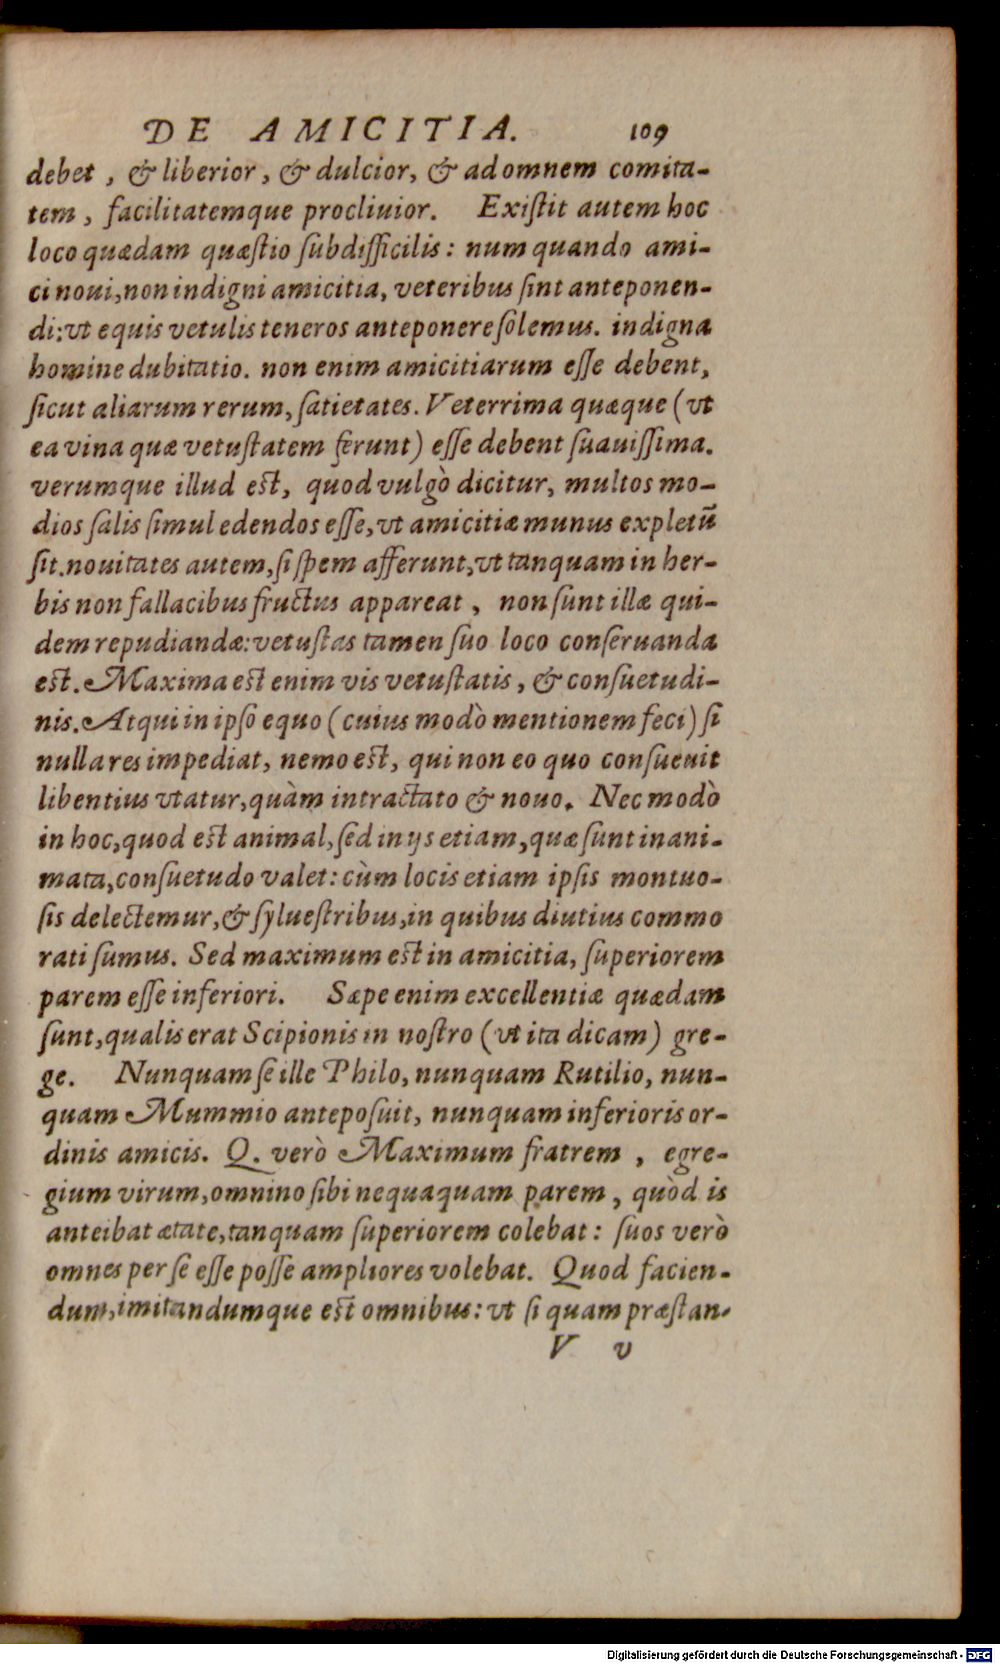 DE AMICITIA. 109
debet, & liberior, & dulcior, & ad omnem comita-
tem, facilitatemque procliuior. Exiſtit autem hoc
loco quædam quæſtio ſubdifficilis: num quando ami-
ci noui, non indigni amicitia, veteribus ſint anteponen-
di: vt equis vetulis teneros anteponere ſolemus. indigna
homine dubitatio. non enim amicitiarum eſſe debent,
ſicut aliarum rerum, ſatietates. Veterrima quæque (vt
ea vina quæ vetuſtatem ferunt) eſſe debent ſuauiſſima.
verumque illud eſt, quod vulgò dicitur, multos mo-
dios ſalis ſimul edendos eſſe, vt amicitiæ munus expletū
ſit. nouitates autem, ſi ſpem afferunt, vt tanquam in her-
bis non fallacibus fructus appareat, non ſunt illæ qui-
dem repudiandæ: vetuſtas tamen ſuo loco conſeruanda
eſt. Maxima eſt enim vis vetuſtatis, & conſuetudi-
nis. Atqui in ipſo equo (cuius modò mentionem feci) ſi
nulla res impediat, nemo eſt, qui non eo quo conſueuit
libentius vtatur, quàm intractato & nouo. Nec modò
in hoc, quod eſt animal, ſed in ijs etiam, quæ ſunt inani-
mata, conſuetudo valet: cùm locis etiam ipſis montuo-
ſis delectemur, & ſylueſtribus, in quibus diutius commo
rati ſumus. Sed maximum eſt in amicitia, ſuperiorem
parem eſſe inferiori. Sæpe enim excellentiæ quædam
ſunt, qualis erat Scipionis in noſtro (vt ita dicam) gre-
ge. Nunquam ſe ille Philo, nunquam Rutilio, nun-
quam Mummio antepoſuit, nunquam inferioris or-
dinis amicis. Q. verò Maximum fratrem, egre-
gium virum, omnino ſibi nequaquam parem, quòd is
anteibat ætate, tanquam ſuperiorem colebat: ſuos verò
omnes per ſe eſſe poſſe ampliores volebat. Quod facien-
dum, imitandumque eſt omnibus: vt ſi quam præſtan-
V v
Digitalisierung gefördert durch die Deutsche Forschungsgemeinschaft - DFG